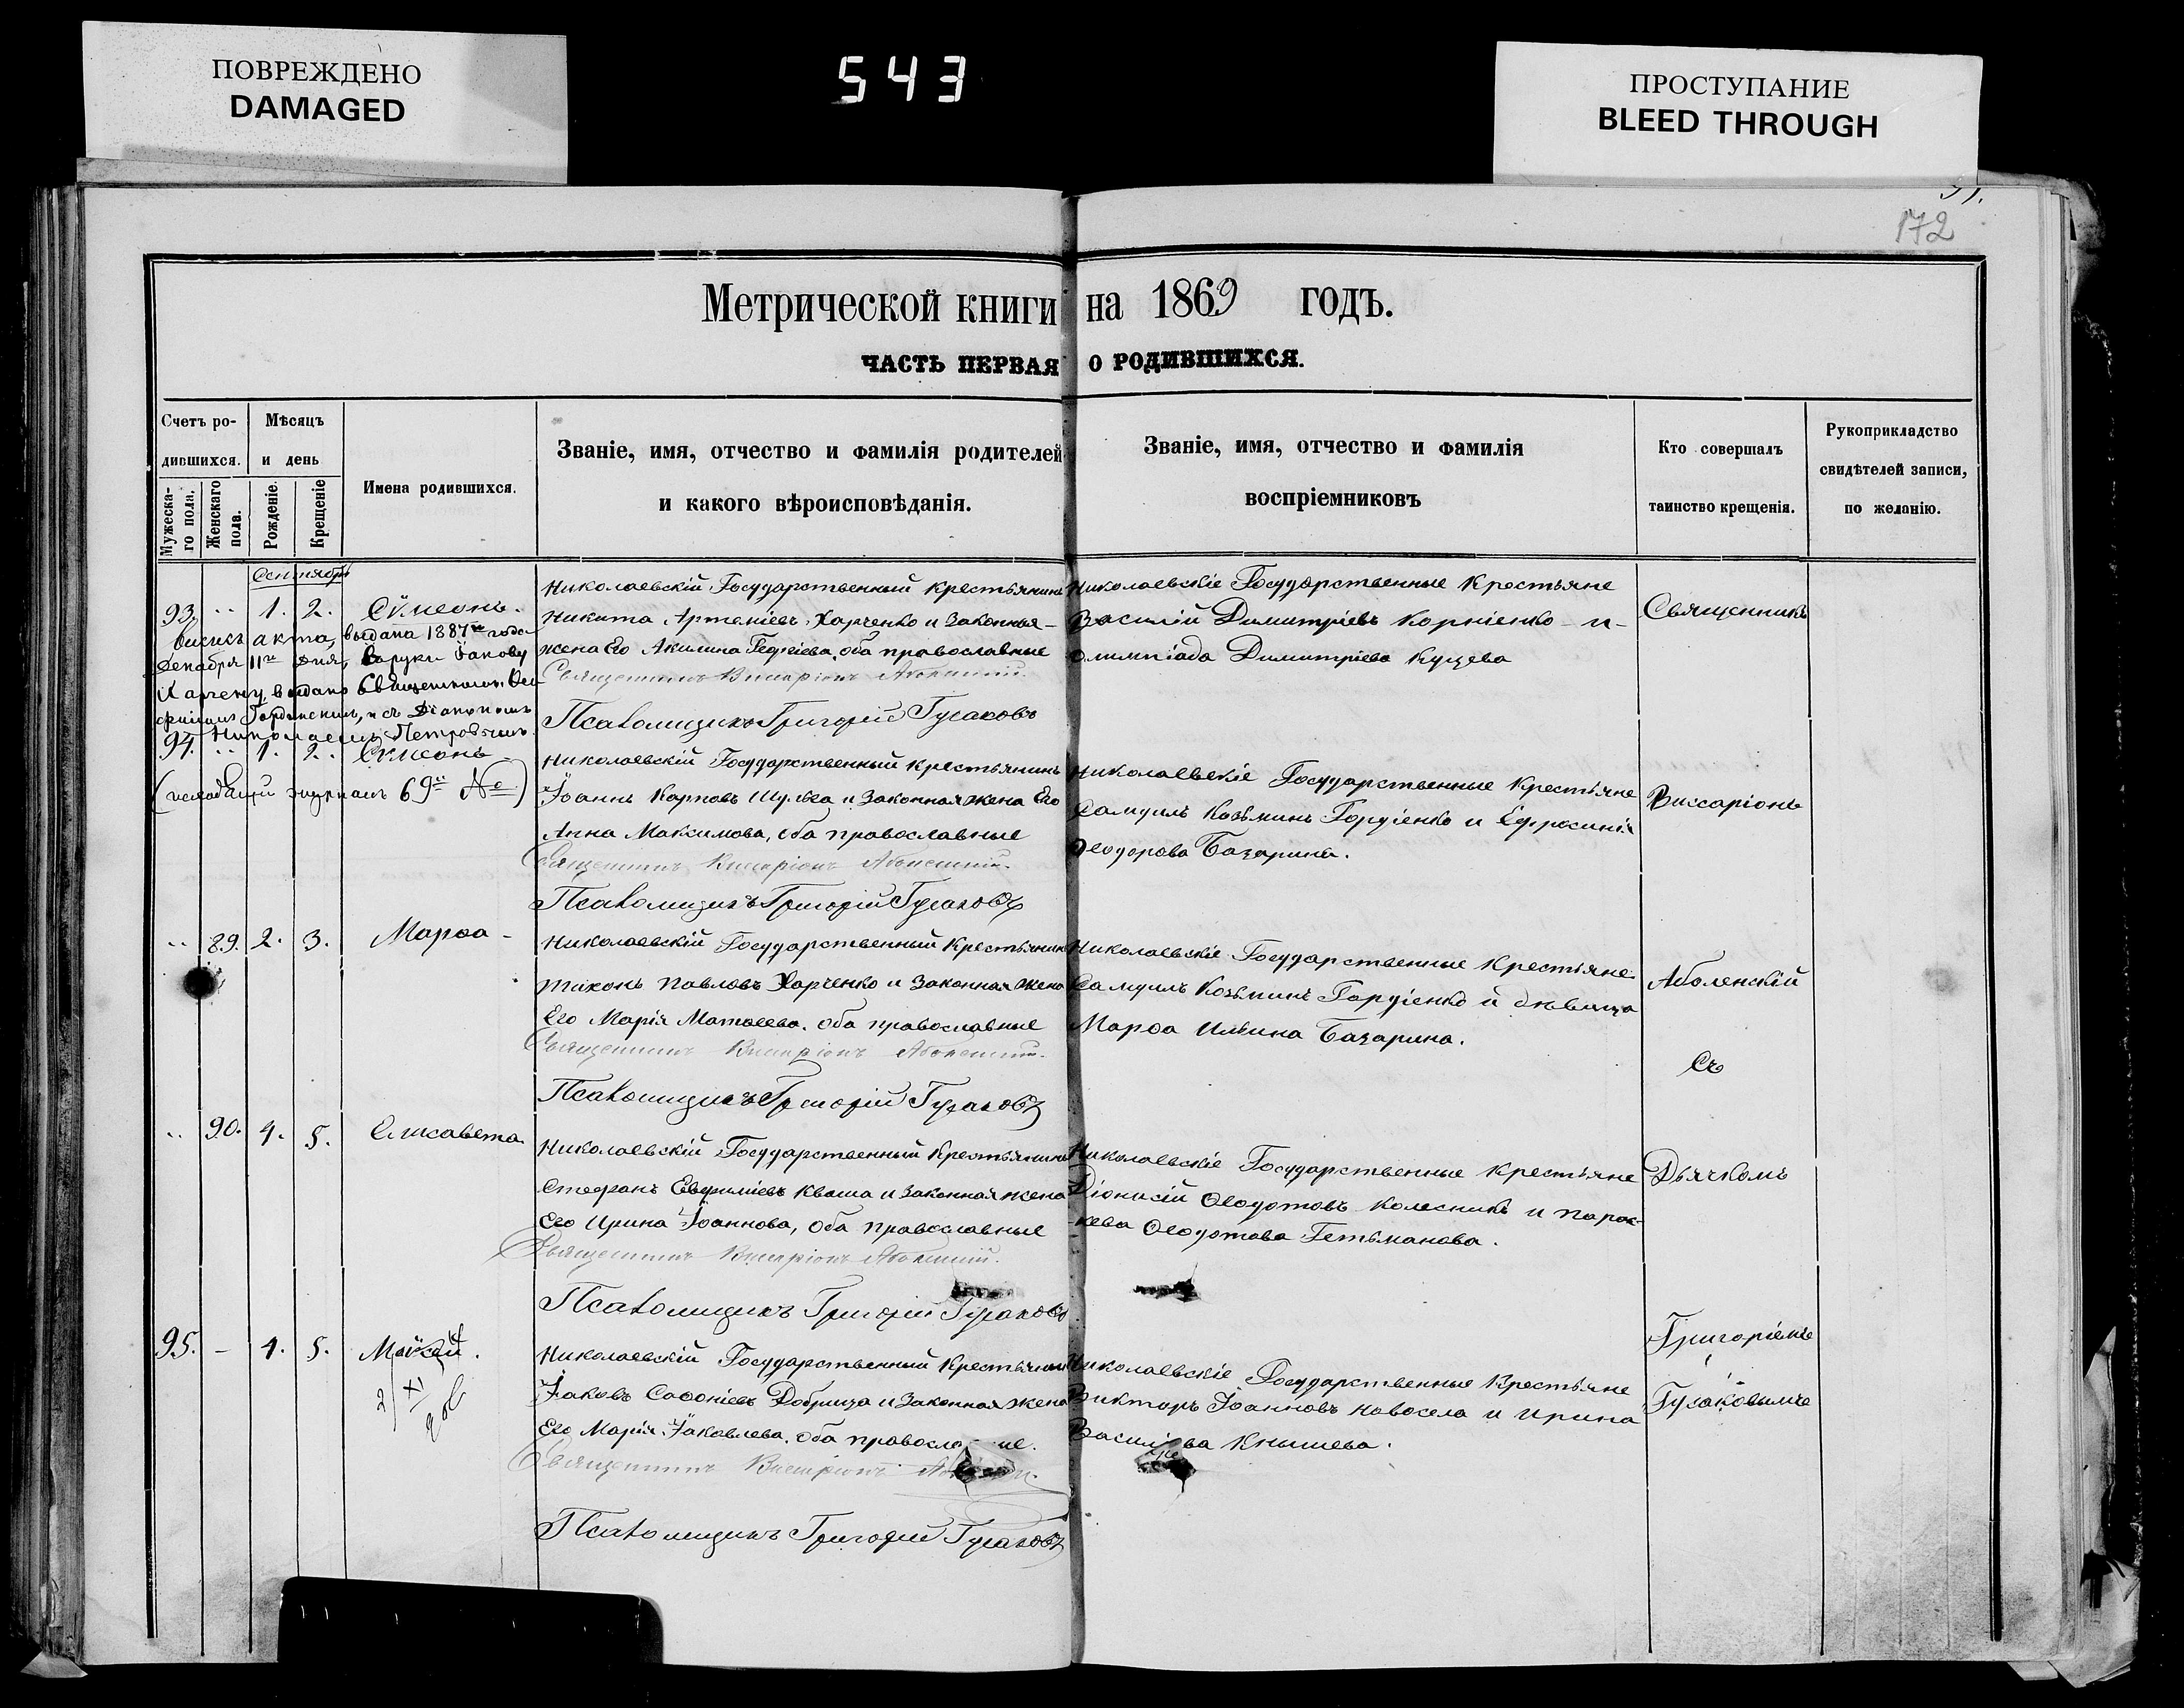 ПОВРЕЖДЕНО
DAMAGED
543
ПРОСТУПАНИЕ
BLEED THROUGH
172
Метрической книги на 1869 годъ.
ЧАСТЬ ПЕРВАЯ О РОДИВШИХСЯ.
Счетъ ро-
дившихся.
Мужеска-
го пола.
Женскаго
пола.
Мѣсяцъ
и день
Рожденіе.
Крещеніе
Имена родившихся.
Званіе, имя, отчество и фамилія родителей
и какого вѣроисповѣданія.
Званіе, имя, отчество и фамилія
воспріемниковъ
Кто совершалъ
таинство крещенія.
Рукоприкладство
свидѣтелей записи,
по желанію.
Сентябрь
93. .. 1. 2. Сѵмеонъ.
выдана 1887го года
Декабря 11го дня, Іакову
Николаевскій Государственный Крестьянинъ
Никита Артеміевъ Харченко и Законная
жена Его Акилина Георгіева, оба православные
Священникъ Виссаріонъ Аболенскій.
Псаломщикъ Григорій Гусаковъ
Николаевскіе Государственные Крестьяне
Василій Димитріевъ Корніенко и
Олимпіада Димитріева Куцева
Священникъ
94. .. 1. 2. Сѵмеонъ
69й №)
Николаевскій Государственный Крестьянинъ
Іоаннъ Карповъ Шульга и Законная жена Его
Анна Максимова, оба православные
Священникъ Виссаріонъ Аболенскій.
Псаломщикъ Григорій Гусаковъ
Николаевскіе Государственные Крестьяне
Самуилъ Козьминъ Гордіенко и Ефросинія
Ѳеодорова Базарина.
Виссаріонъ
.. 89. 2. 3. Марѳа
Николаевскій Государственный Крестьянинъ
Тихонъ Павловъ Харченко и Законная жена
Его Марія Матѳеева. оба православные
Священникъ Виссаріонъ Аболенскій.
Псаломщикъ Григорій Гусаковъ
Николаевскіе Государственные Крестьяне
Самуилъ Козьминъ Гордіенко и дѣвица
Марѳа Ильина Базарина.
Аболенскій
Съ
.. 90. 4. 5. Елисавета
Николаевскій Государственный Крестьянинъ
Стефанъ Евфиміевъ Кваша и Законная жена
Его Ирина Іоаннова, оба православные
Священникъ Виссаріонъ Аболенскій.
Псаломщикъ Григорій Гусаковъ
Николаевскіе Государственные Крестьяне
Діонисій Ѳеодотовъ Колесникъ и Парас-
кева Ѳеодотова Гетьманова.
Дьячкомъ
95. – 4. 5. Моисей.
Николаевскій Государственный Крестьянинъ
Іаковъ Софоніевъ Добрица и Законная жена
Его Марія Іаковлева. оба
Священникъ Виссаріонъ
Псаломщикъ Григорій Гусаковъ
Николаевскіе Государственные Крестьяне
Викторъ Іоанновъ Новосела и Ирина
Василіева Кнышева.
Григоріемъ
Гусаковымъ